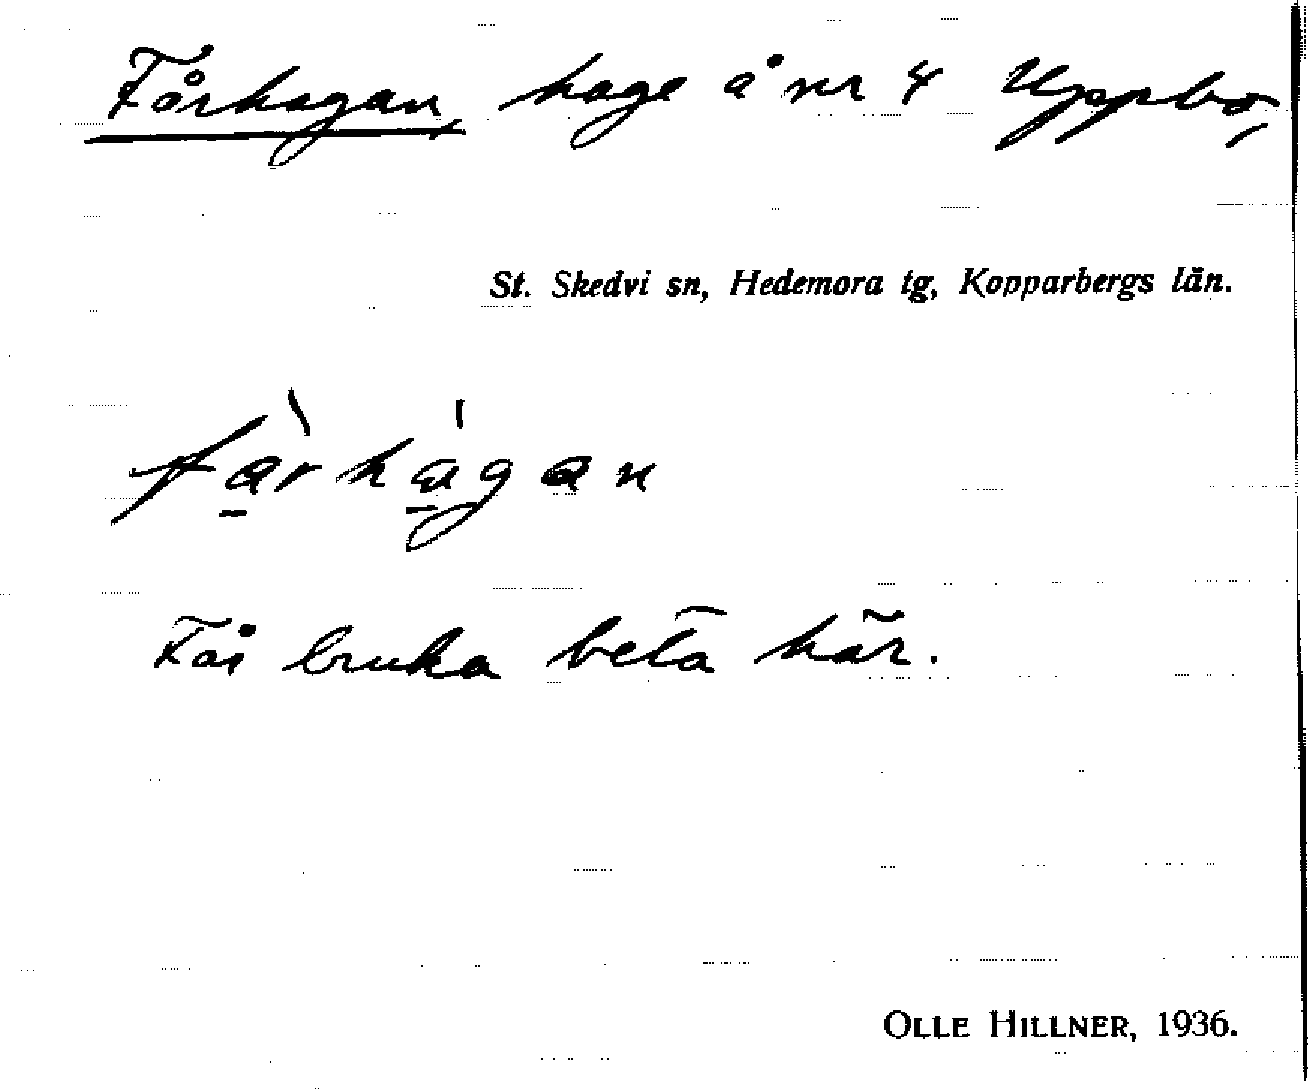 Fårhagan, hage å nr 4 Uppbo,
St. Skedvi sn, Hedemora tg, Kopparbergs län.
få̠̀rha̠̍gan
Får bruka beta här.
OLLE HILLNER, 1936.